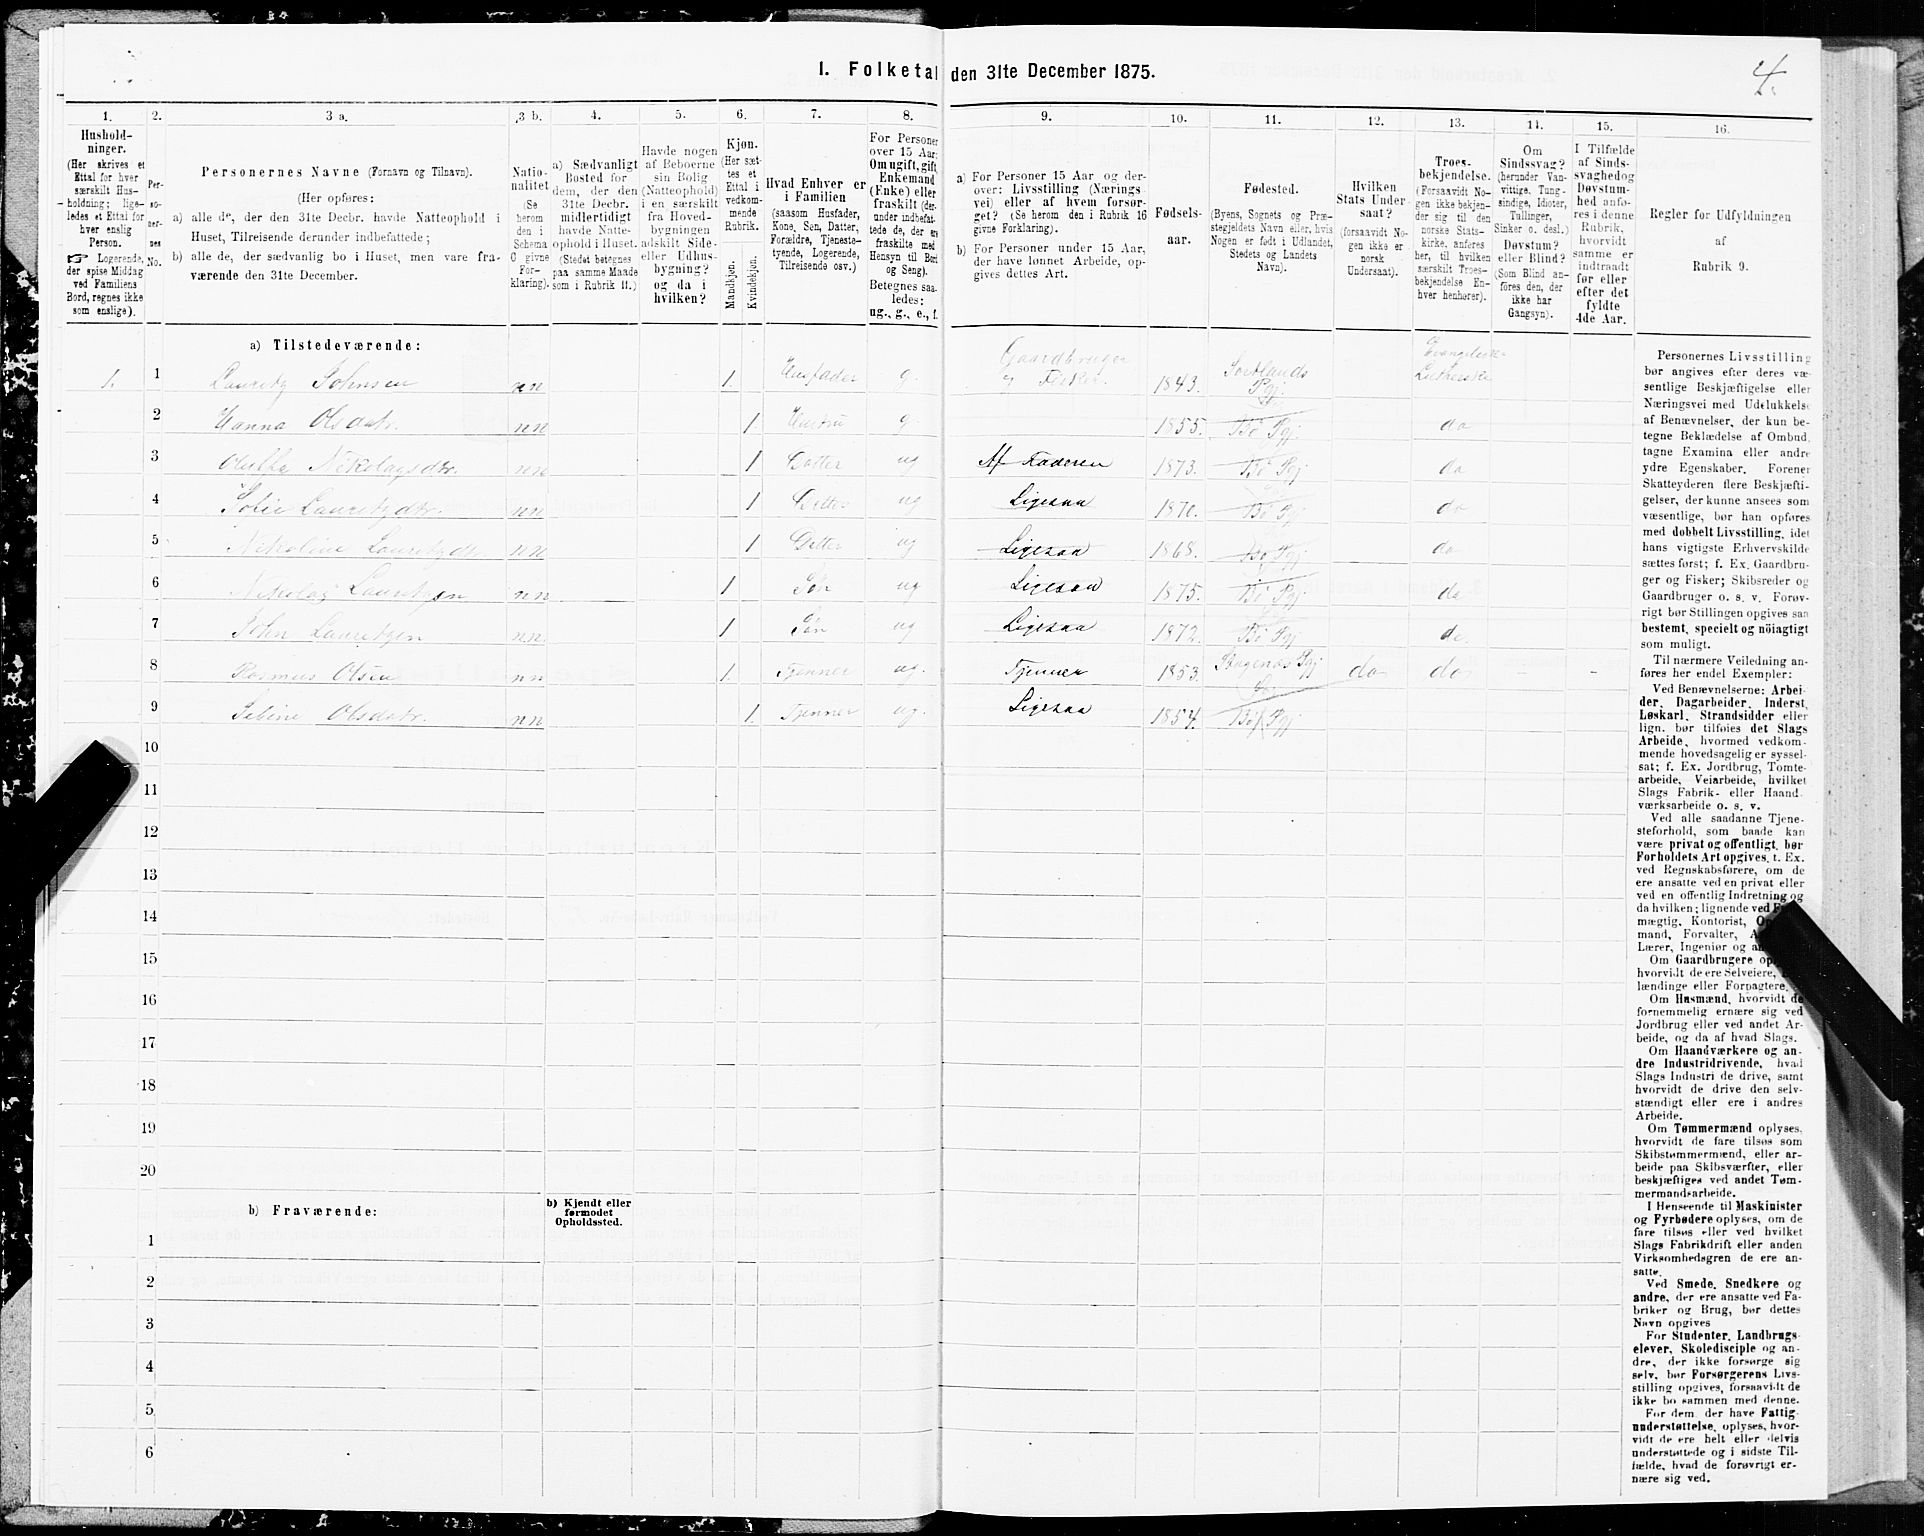 1. Folketal den 31te December 1875.
4.
1.
Hushold-
ninger.
(Her skrives et
Ettal for hver
særskilt Hus-
holdning; lige-
ledes et Ettal for
hver enslig
Person.
☞ Logerende,
der spise Middag
ved Familiens
Bord, regnes ikke
som enslige).
2.
Per-
so-
ner-
nes
No.
3 a.
Personernes Navne (Fornavn og Tilnavn).
(Her opføres:
a) alle de, der den 31te Decbr. havde Natteophold i
Huset, Tilreisende derunder indbefattede;
b) alle de, der sædvanlig bo i Huset, men vare fra-
værende den 31te December.
3 b.
Natio-
nalitet
(Se
herom
den i
Schema
C givne
For-
klaring).
4.
a) Sædvanligt
Bosted for
dem, der den
31te Decbr.
midlertidigt
havde Natte-
ophold i Huset.
(Stedet betegnes
paa samme Maade
som i Rubrik 11.)
5.
Havde nogen
af Beboerne
sin Bolig
(Natteophold)
i en særskilt
fra Hoved-
bygningen
adskilt Side-
eller Udhus-
bygning?
og da i
hvilken?
6.
Kjøn.
(Her sæt-
tes et
Ettal i
vedkom-
mende
Rubrik.
Mandkjøn.
Kvindekjøn.
7.
Hvad Enhver er
i Familien
(saasom Husfader,
Kone, Søn, Datter,
Forældre, Tjeneste-
tyende, Logerende,
Tilreisende osv.)
8.
For Personer
over 15 Aar:
Om ugift, gift,
Enkemand
(Enke) eller
fraskilt (der-
under indbefat-
tede de, der ere
fraskilte med
Hensyn til Bord
og Seng).
Betegnes saa-
ledes:
ug., g., e., f.
9.
a) For Personer 15 Aar og der-
over: Livsstilling (Nærings-
vei) eller af hvem forsør-
get? (Se herom den i Rubrik 16
givne Forklaring).
b) For Personer under 15 Aar,
der have lønnet Arbeide, op-
gives dettes Art.
10.
Fødsels-
aar.
11.
Fødested.
(Byens, Sognets og Præ-
stegjeldets Navn eller, hvis
Nogen er født i Udlandet,
Stedets og Landets
Navn).
12.
Hvilken
Stats Under-
saat?
(forsaavidt No-
gen ikke er
norsk
Undersaat).
13.
Troes-
bekjendelse.
(Forsaavidt No-
gen ikke bekjen-
der sig til den
norske Stats-
kirke, anføres
her, til hvilken
særskilt Troes-
bekjendelse En-
hver henhører).
14.
Om
Sindssvag?
(herunder Van-
vittige, Tung-
sindige, Idioter,
Tullinger,
Sinker o. desl.)
Døvstum?
eller Blind?
(Som Blind an-
føres den, der
ikke har
Gangsyn).
15.
I Tilfælde
af Sinds-
svaghed og
Døvstum-
hed anfø-
res i denne
Rubrik,
hvorvidt
samme er
indtraadt
før eller
efter det
fyldte
4de Aar.
16.
Regler for Udfyldningen
af
Rubrik 9.
a) Tilstedeværende:
1. 1 Lauritz Johnsen nn 1. Husfader g. Gaardbruger y Fisker 1843. Sortlands Pgj. Evangeliske Lutherske
2 Hanna Olsdatr. nn 1. Hustru g. 1855. Bö Pgj. do
3 Nikolaysdtr. nn 1 Datter ug Af Faderen 1873. Bö Pgj do
4 Sofie Lauritzdtr. nn 1 Datter ug Ligesaa 1870. Bö Pgj do
5 Nikoline Lauritzdtr nn 1 Datter ug Ligesaa 1868. Bö Pgj do
6 Nikolay Lauritzen nn 1 Søn ug Ligesaa 1875. Bö Pgj do
7 John Lauritzen nn. 1 Søn ug Ligesaa 1872. Bö Pgj do.
8 Rasmus Olsen nn 1. Tjenner ug. Tjenner 1853. Pgj do do - -
9 Sebine Olsdatr. nn 1. Tjenner ug. Ligesaa 1854. Bö Pgj
10
11
12
13
14
15
16
17
18
19
20
b) Fraværende:
b) Kjendt eller
formodet
Opholdssted.
1
2
3
4
5
6
Personernes Livsstilling
bør angives efter deres væ-
sentlige Beskjæftigelse eller
Næringsvei med Udelukkelse
af Benævnelser, der kun be-
tegne Beklædelse af Ombud,
tagne Examina eller andre
ydre Egenskaber. Forener
Skatteyderen flere Beskjæfti-
gelser, der kunne ansees som
væsentlige, bør han opføres
med dobbelt Livsstilling, idet
hans vigtigste Erhvervskilde
sættes først; f. Ex. Gaardbru-
ger og Fisker; Skibsreder og
Gaardbruger o. s. v. Forøv-
rigt bør Stillingen opgives saa
bestemt, specielt og nöiagtigt
som muligt.
Til nærmere Veiledning an-
føres her endel Exempler:
Ved Benævnelserne: Arbei-
der, Dagarbeider, Inderst,
Løskarl, Strandsidder eller
lign. bør tilføies det Slags
Arbeide, hvormed vedkom-
mende hovedsagelig er syssel-
sat; f. Ex. Jordbrug, Tomte-
arbeide, Veiarbeide, hvilket
Slags Fabrik- eller Haand-
værksarbeide o. s. v.
Ved alle saadanne Tjene-
steforhold, som baade kan
være privat og offentligt, bør
Forholdets Art opgives, t. Ex.
ved Regnskabsførere, om de
ere ansatte ved en privat eller
ved en offentlig Indretning og
da hvilken; lignende ved
mægtig, Kontorist,
mand, Forvalter,
Lærer, Ingeniør og
Om Gaardbrugere
hvorvidt de ere Selveiere,
lændinge eller Forpagtere.
Om Husmænd, hvorvidt de
fornemmelig ernære sig ved
Jordbrug eller ved andet Ar-
beide, og da af hvad Slags.
Om Haandværkere og an-
dre Industridrivende, hvad
Slags Industri de drive, samt
hvorvidt de drive den selv-
stændigt eller ere i andres
Arbeide.
Om Tømmermænd oplyses,
hvorvidt de fare tilsøs som
Skibstømmermænd, eller ar-
beide paa Skibsværfter, eller
beskjæftiges ved andet Tøm-
mermandsarbeide.
I Henseende til Maskinister
og Fyrbødere oplyses, om de
fare tilsøs eller ved hvilket
Slags Fabrikdrift eller anden
Virksomhedsgren de ere an-
satte.
Ved Smede, Snedkere og
andre, der ere ansatte ved Fa-
briker og Brug, bør dettes
Navn opgives
For Studenter, Landbrugs-
elever, Skoledisciple og an-
dre, der ikke forsørge sig
selv, bør Forsørgerens Livs-
stilling opgives, forsaavidt de
ikke bo sammen med denne.
For dem, der have Fattig-
understøttelse, oplyses, hvor-
vidt de ere helt eller delvis
understøttede og i sidste Til-
fælde, hvad de forøvrigt er-
nære sig ved.